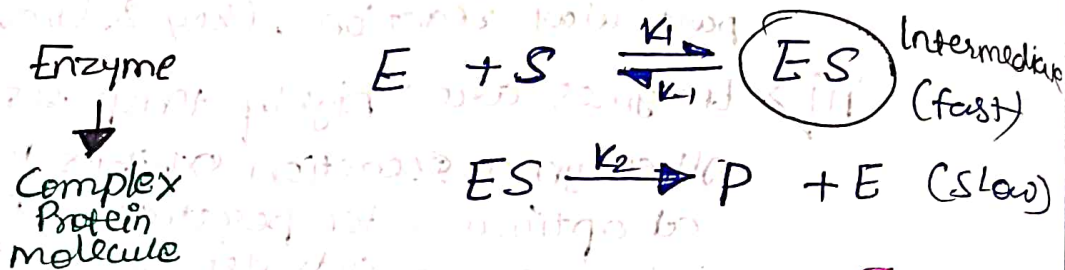 Enzyme
Complex
Protein
molecule
E + S ⇌ ES Intermediate
K1
K-1
(fast)
ES → P + E (Slow)
K2